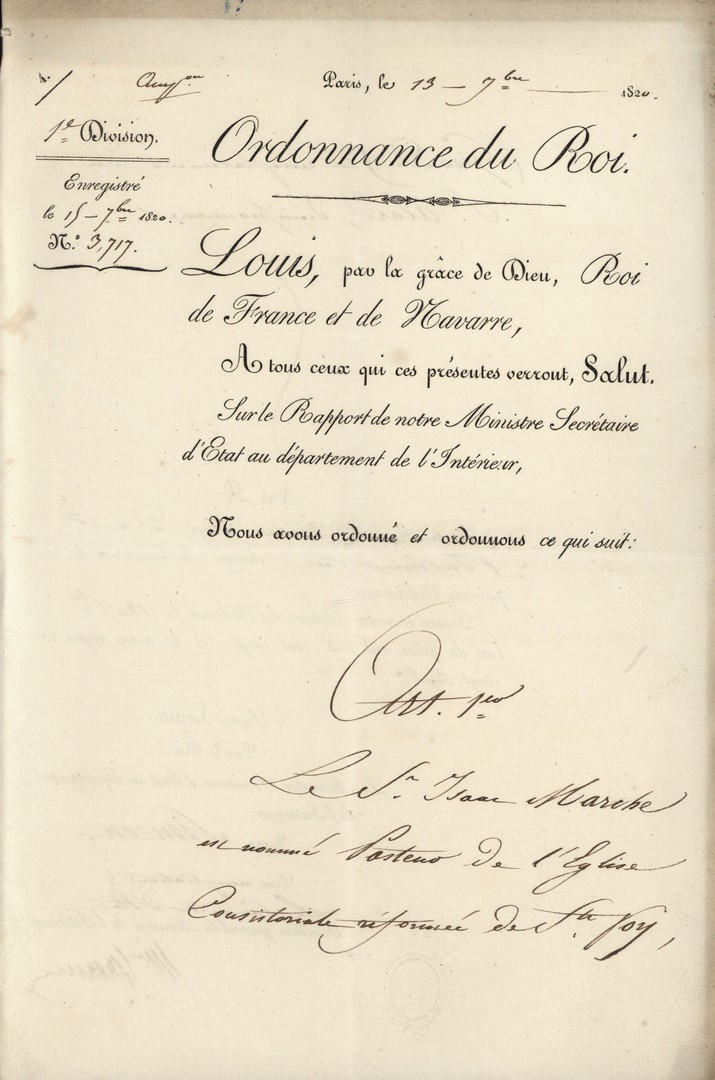 Ampon
Paris, le 13 — 7bre — 1820.
1e Division.
Ordonnance du Roi.
Enregistré
le 15 — 7bre 1820.
N.° 3,717.
Louis, par la grâce de Dieu, Roi
de France et de Navarre,
A tous ceux qui ces présentes verront, Salut.
Sur le Rapport de notre Ministre Secrétaire
d'Etat au département de l'Intérieur,
Nous avons ordonné et ordonnons ce qui suit:
Art. 1er
Le Sr. Isaac Marche
est nommé Pasteur de l'Eglise
Consistoriale réformée de Ste. Foy,